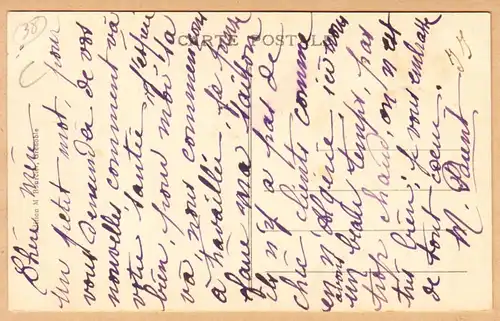 38
CARTE POSTALE
Chère
Un petit mot, pour
vous demander de vos
nouvelles, comment va
votre santé, j'espère
bien, pour moi sa
va nous commençons
à travailler, je pense
que ma
il n'y a pas de
chic clients comme
en Algérie ici nous
avons
un beau temps, pas
trop chaud, on n'est
très bien, je vous embrasse
de tout cœur.
M